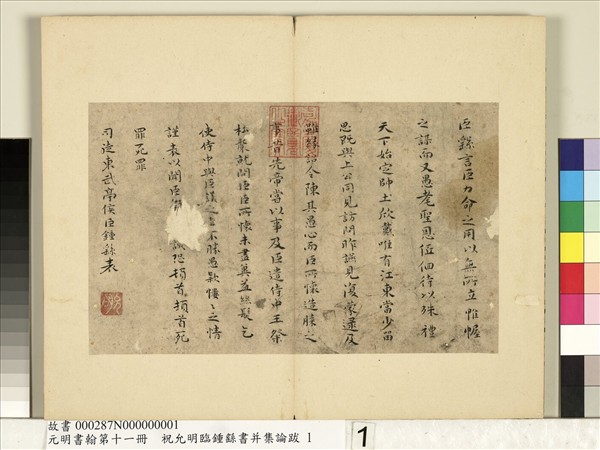 臣繇言臣力命之用以無所立惟幄
之謀而又愚耄聖恩低佪待以殊禮
天下始定師士欣戴唯有江東當少留
思既與上公同見訪問昨謁見復蒙逮及
雖緣詔令陳其愚心而臣所懷造膝之
事昔先帝當以事及臣遣侍中王粲
杜襲就問臣臣所懷未盡冀益絲髮乞
使侍中與臣議之臣不勝愚款慺慺之情
謹表以聞臣繇誠恐頓首頓首死
罪死罪
司徒東武亭侯臣鍾繇表
故書 000287N000000001
元明書翰第十一冊 祝允明臨鍾繇書并集論跋 1
1